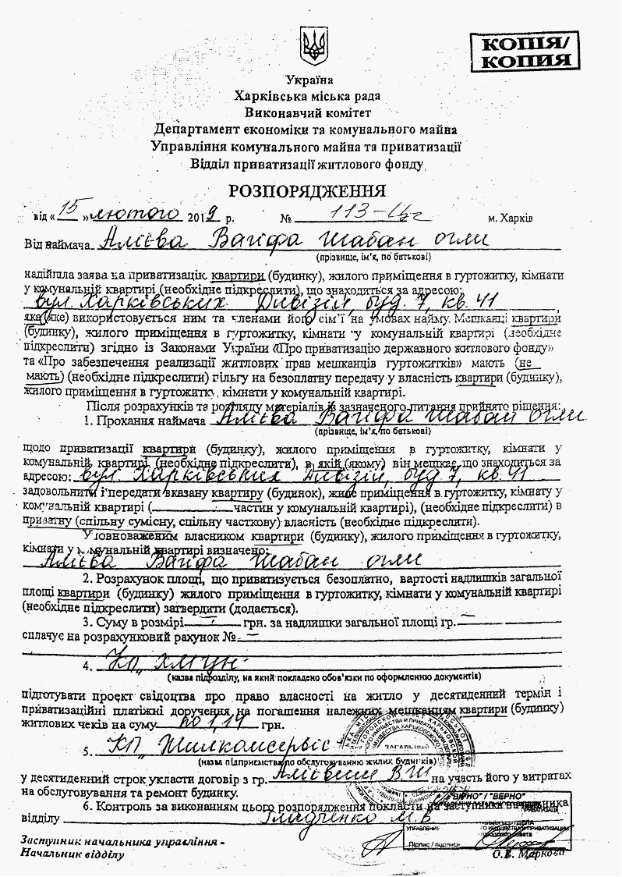 КОПІЯ/
КОПИЯ
Україна
Харківська міська рада
Виконавчий комітет
Департамент економіки та комунального майна
Управління комунального майна та приватизації
Відділ приватизації житлового фонду
РОЗПОРЯДЖЕННЯ
від « 15 » лютого 2019 р. № 113- м. Харків
Від наймача Алієва Вагіфа Шабан огли
(прізвище, ім'я, по батькові)
надійшла заява на приватизацію квартири (будинку), жилого приміщення в гуртожитку, кімнати
у комунальній квартирі (необхідне підкреслити), що знаходиться за адресою:
вул. Харківських Дивізій буд. 7, кв. 41,
яка (яке) використовується ним та членами його сім'ї на умовах найму. Мешканці квартири
(будинку), жилого приміщення в гуртожитку, кімнати у комунальній квартирі (необхідне
підкреслити) згідно із Законами України «Про приватизацію державного житлового фонду»
та «Про забезпечення реалізації житлових прав мешканців гуртожитків» мають (не
мають) (необхідне підкреслити) пільгу на безоплатну передачу у власність квартири (будинку),
жилого приміщення в гуртожитку, кімнати у комунальній квартирі.
Після розрахунків та розгляду матеріалів із зазначеного питання прийнято рішення:
1. Прохання наймача Алієва Вагіфа Шабан огли
(прізвище, ім'я, по батькові)
щодо приватизації квартири (будинку), жилого приміщення в гуртожитку, кімнати у
комунальній квартирі (необхідне підкреслити), в якій (якому) він мешкає, що знаходиться за
адресою: вул. Харківських Дивізій, буд. 7, кв. 41
задовольнити і передати вказану квартиру (будинок), жиле приміщення в гуртожитку, кімнату у
комунальній квартирі ( частин у комунальній квартирі), (необхідне підкреслити) в
приватну (спільну сумісну, спільну часткову) власність (необхідне підкреслити).
Уповноваженим власником квартири (будинку), жилого приміщення в гуртожитку,
кімнати у комунальній квартирі визначено:
Алієва Вагіфа Шабан огли
2. Розрахунок площі, що приватизується безоплатно, вартості надлишків загальної
площі квартири (будинку) жилого приміщення в гуртожитку, кімнати у комунальній квартирі
(необхідне підкреслити) затвердити (додається).
3. Суму в розмірі - грн. за надлишки загальної площі гр. -
сплачує на розрахунковий рахунок № -
4. КП "ХМЦН"
(назва підрозділу, на який покладено обов'язки по оформленню документів)
підготувати проект свідоцтва про право власності на житло у десятиденний термін і
приватизаційні платіжні доручення на погашення належних мешканцям квартири (будинку)
житлових чеків на суму 1,14 грн.
5. КП "Жилкомсервіс"
(назва підприємства по обслуговуванню жилих будинків)
у десятиденний строк укласти договір з гр. Алієвим В.Ш. на участь його у витратах
на обслуговування та ремонт будинку.
6. Контроль за виконанням цього розпорядження покласти на заступника начальника
відділу Гладченко М.В
ЗАГАЛЬНИЙ
"ВІРНО" / "ВЕРНО"
УПРАВЛІННЯ
Підпис / подпись
Заступник начальника управління -
Начальник відділу О.В. Маркова